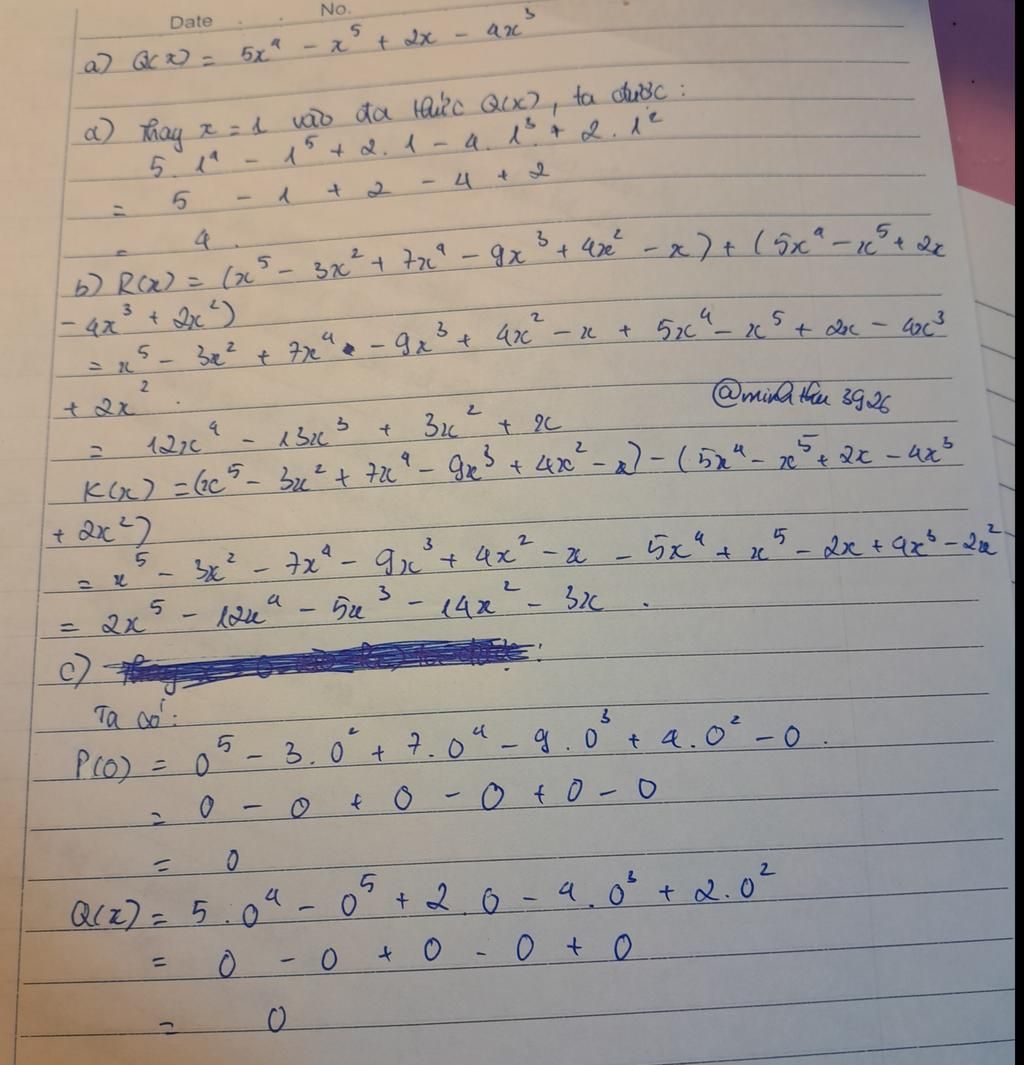 Date . . No.
a) Q(x) = 5x⁴ - x⁵ + 2x - 4x³
a) Thay x = 1 vào đa thức Q(x), ta được:
5. 1⁴ - 1⁵ + 2. 1 - 4. 1³ + 2. 1²
= 5 - 1 + 2 - 4 + 2
= 4.
b) R(x) = (x⁵ - 3x² + 7x⁴ - 9x³ + 4x² - x) + (5x⁴ - x⁵ + 2x
- 4x³ + 2x²)
= x⁵ - 3x² + 7x⁴ - 9x³ + 4x² - x + 5x⁴ - x⁵ + 2x - 4x³
+ 2x².
@minhthu3926
= 12x⁴ - 13x³ + 3x² + x
K(x) = (x⁵ - 3x² + 7x⁴ - 9x³ + 4x² - x) - (5x⁴ - x⁵ + 2x - 4x³
+ 2x²)
= x⁵ - 3x² - 7x⁴ - 9x³ + 4x² - x - 5x⁴ + x⁵ - 2x + 4x³ - 2x²
= 2x⁵ - 12x⁴ - 5x³ - 14x² - 3x .
c)
Ta có:
P(0) = 0⁵ - 3. 0² + 7. 0⁴ - 9. 0³ + 4. 0² - 0 .
= 0 - 0 + 0 - 0 + 0 - 0
= 0
Q(x) = 5. 0⁴ - 0⁵ + 2. 0 - 4. 0³ + 2. 0²
= 0 - 0 + 0 - 0 + 0
= 0